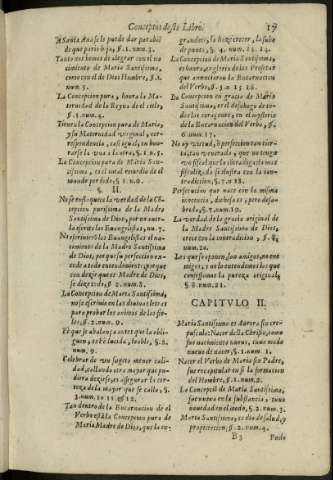 Conceptos deste Libro. 19
A Santa Ana se le puede dar parabiẽ
de que parió hija, §. 1. num. 3.
Tanto nos hemos de alegrar con el na
cimiento de Maria Santissima,
como con el de Dios Hombre, §. 1.
num. 5.
La Concepcion pura, honra la Ma-
ternidad de la Reyna de el cielo,
§. 1. num. 4.
Tiene la Concepcion pura de Maria,
y su Maternidad virginal, cor-
respondencia, casi igual, en hon-
rarse la vna a la otra, §. 1. n. 5.
La Concepcion pura de Maria San-
tissima, es el total remedio de el
mundo perdido, § 1. n. 6.
§. II.
No se nos oquesta verdad de la Cõ-
cepcion purissima de la Madre
Santissima de Dios, por no auer
la escrito los Euangelistas, nu. 7.
No escriuieron los Euangelistas el na-
cimiento de la Madre Santissima
de Dios, por que su perfeccion ex-
cede a todo entendimiento; y por que
con dezir que es Madre de Dios,
se dize todo, § 2. num. 8.
La Concepcion de Maria Santissima,
no se escriuio en los diuinos libros
para probar los animos de los fie-
les, §. 2. num. 9.
Fè que se alcança antes que la obli-
guen, es Fè lucida, y noble, §. 2.
num. 9.
Celebrar de vn sugeto menor cali-
dad, callando otra mayor que pu-
diera dezirse, es assegurar la cer-
teza de la mayor que se calla, §.
2. num. 10 11 & 12.
Tan dentro de la Encarnacion de el
Verbo està la Concepcion pura de
Maria Madre de Dios, que la en-
grandece, la haze crecer, la sube
de punto, §. 4. num. 13. 14.
La Concepcion de Maria Santissima,
es honra, es gloria de los Profetas
que anunciaron la Encarnacion
del Verbo, §. 5. n. 15 16.
La Concepcion en gracia de Maria
Santissima, es el desahogo de to-
dos los coraçones, en el mysterio
de la Encarnacion del Verbo, §.
6. num. 17.
No ay virtud, ò perfeccion tan cier-
ta, tan venerada, que no tenga
vn fiscal que la contradiga; la mas
fiscalizada se ilustra con la con-
tradicion, §. 7. n 18.
Persecucion que nace con la misma
inocencia, dichosa es, pero desa-
brida, §. 7. num. 19.
La verdad de la gracia original de
la Madre Santissima de Dios,
crece con la contradicion, §. 8.
num. 20.
Los que se oponen, son amigos, no ene
migos; y no lo entendemos los que
confessamos la pureza original,
§ 8. num. 21.
CAPITVLO II.
Maria Santissima es Aurora su cre-
pusculo: Nacer della Christo, con
sus nacimientos nueuos, tuuo modo
nueuo de nacer, §. 1. num. 1.
Nacer el Verbo de Maria sin Padre,
fue recapitular en sì la formacion
del Hombre, §. 1. num. 2.
La Concepciõ de Maria Santissima,
fue nueua en la substancia, tuuo
nouedad en el modo, § 2. num. 3.
Maria Santissima, es dia de salud, y
propiciacion, § 2. num. 4.
B 3 Todo